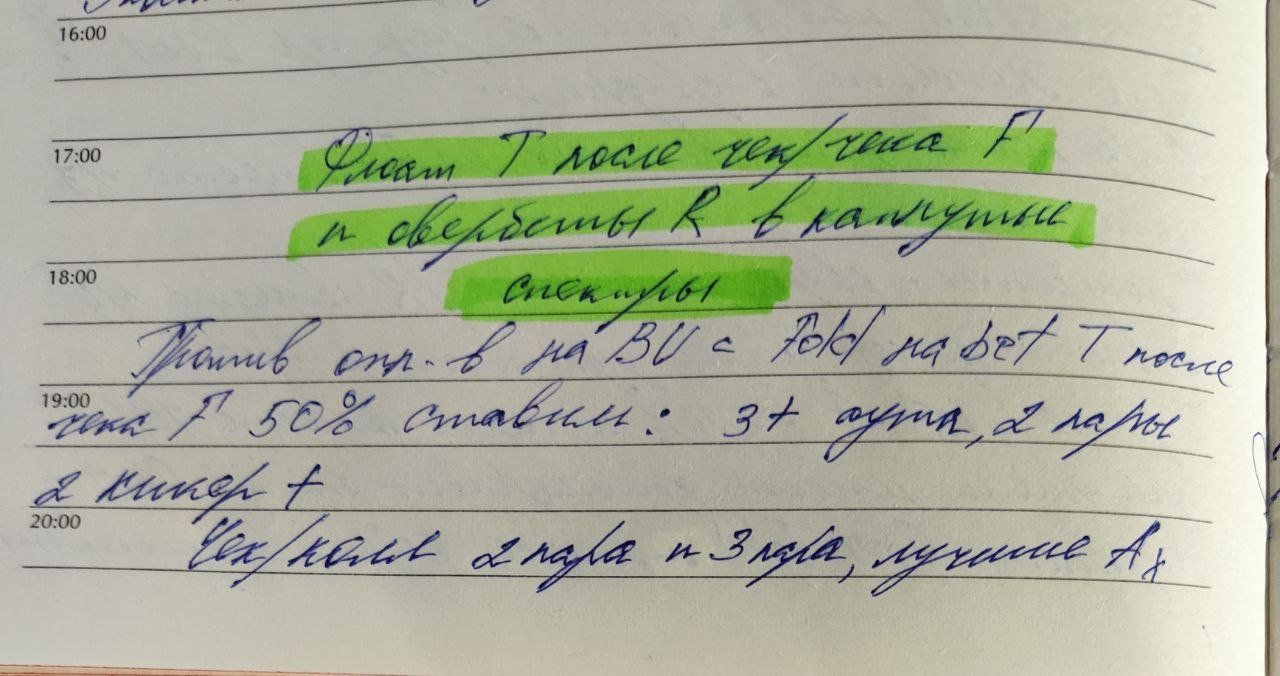 16:00
17:00
Флоат T после чек/чека F
и овербеты R в капнутые
18:00
спектры
Против опп-в на BU с Fold на bet T после
19:00
чека F 50% ставим: 3+ аута, 2 пары
2 кикер +
20:00
Чек/колл 2 пара и 3 пара, лучшие Ax